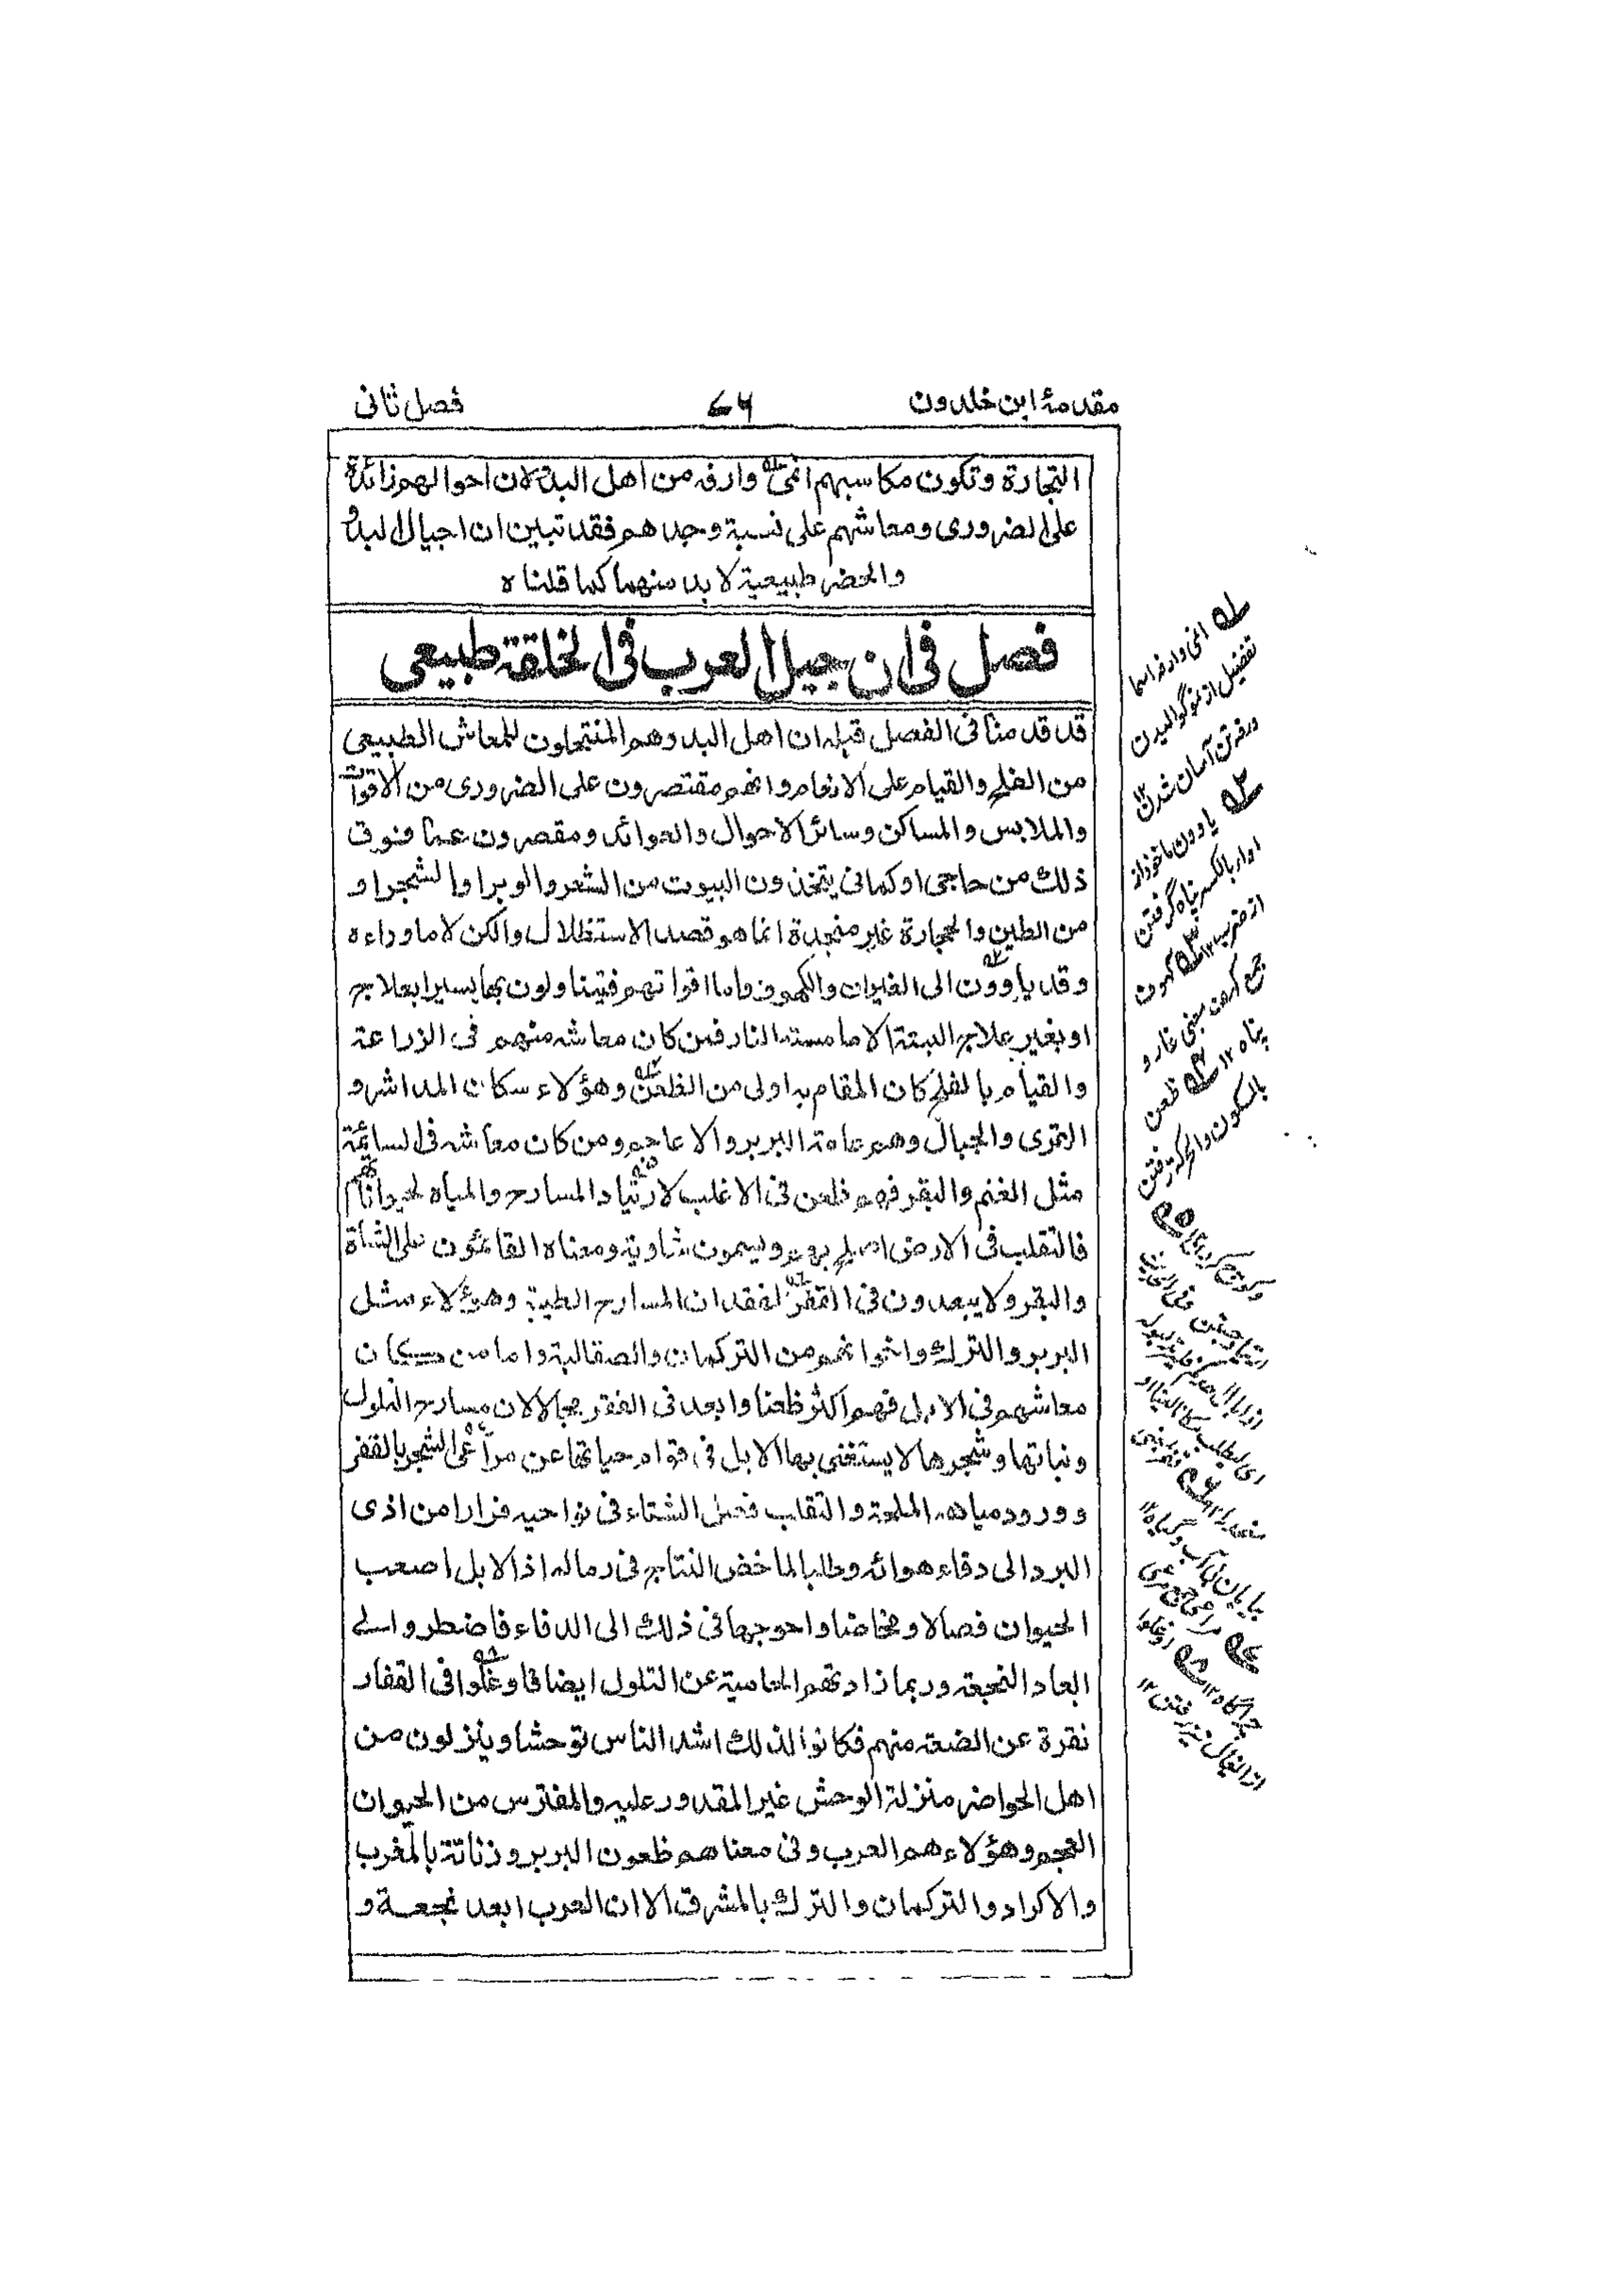 مقدمۀ ابن خلدون
۷۶
فصل ثانی
التجارة وتكون مكاسبهم انمى وارفه من اهل البدو لان احوالهم زائدة
على الضرورى ومعاشهم على نسبة وجدهم فقد تبين ان اجيال البدو
والحضر طبيعية لابد منهما كما قلناه
فصل فى ان جيل العرب فى الخلقة طبيعى
قد قدمنا فى الفصل قبله ان اهل البدو هم المنتحلون للمعاش الطبيعى
من الفلح والقيام على الانعام وانهم مقتصرون على الضرورى من الاقوات
والملابس والمساكن وسائر الاحوال والعوائد ومقصرون عما فوق
ذلك من حاجى او كمانى يتخذون البيوت من الشعر والوبر او الشجر او
من الطين والحجارة غير منجدة انما هو قصد الاستظلال والكن لا ماوراءه
وقد يأوون الى الغيران والكهوف واما اقواتهم فيتناولون بها يسيرا بعلاج
او بغير علاج البتة الا ما مسته النار فمن كان معاشه منهم فى الزراعة
والقيام بالفلح كان المقام به اولى من الظعن وهؤلاء سكان المداشر و
القرى والجبال وهم عامة البربر والاعاجم ومن كان معاشه فى السائمة
مثل الغنم والبقر فهم ظعن فى الاغلب لارتياد المسارح والمياه لحيواناتهم
فالتقلب فى الارض اصلح بهم ويسمون شاوية ومعناه القائمون على الشاة
والبقر ولا يبعدون فى القفر لفقدان المسارح الطيبة وهؤلاء مثل
البربر والترك واخوانهم من التركمان والصقالبة واما من كان
معاشهم فى الابل فهم اكثر ظعنا وابعد فى القفر مجالا لان مسارح التلول
ونباتها وشجرها لا يستغنى بها الابل فى قوام حياتها عن مراعى الشجر بالقفر
وورود مياهه الملحة والتقلب فصل الشتاء فى نواحيه فرارا من اذى
البرد الى دفاء هوائه وطلبا لماخض النتاج فى رماله اذ الابل اصعب
الحيوان فصالا ومخاضا واحوجها فى ذلك الى الدفاء فاضطروا الى
ابعاد النجعة وربما زادتهم الحامية عن التلول ايضا فاوغلوا فى القفار
نقرة عن الضعة منهم فكانوا لذلك اشد الناس توحشا وينزلون من
اهل الحواضر منزلة الوحش غير المقدور عليه والمفترس من الحيوان
العجم وهؤلاء هم العرب وفى معناهم ظعون البربر وزناتة بالمغرب
والاكراد والتركمان والترك بالمشرق الا ان العرب ابعد نجعة و
انمى وارفه اسما
تفضيل از نمو گواليدن
ورفه تن آسان شدن ۱۲
ياوون ماخوذ از
اواء بالكسر پناه گرفتن
از ضرب ۱۲ كهوف
جمع كهف بمعنى غار و
پناه ۱۲ ظعن
بالسكون والحركة رفتن